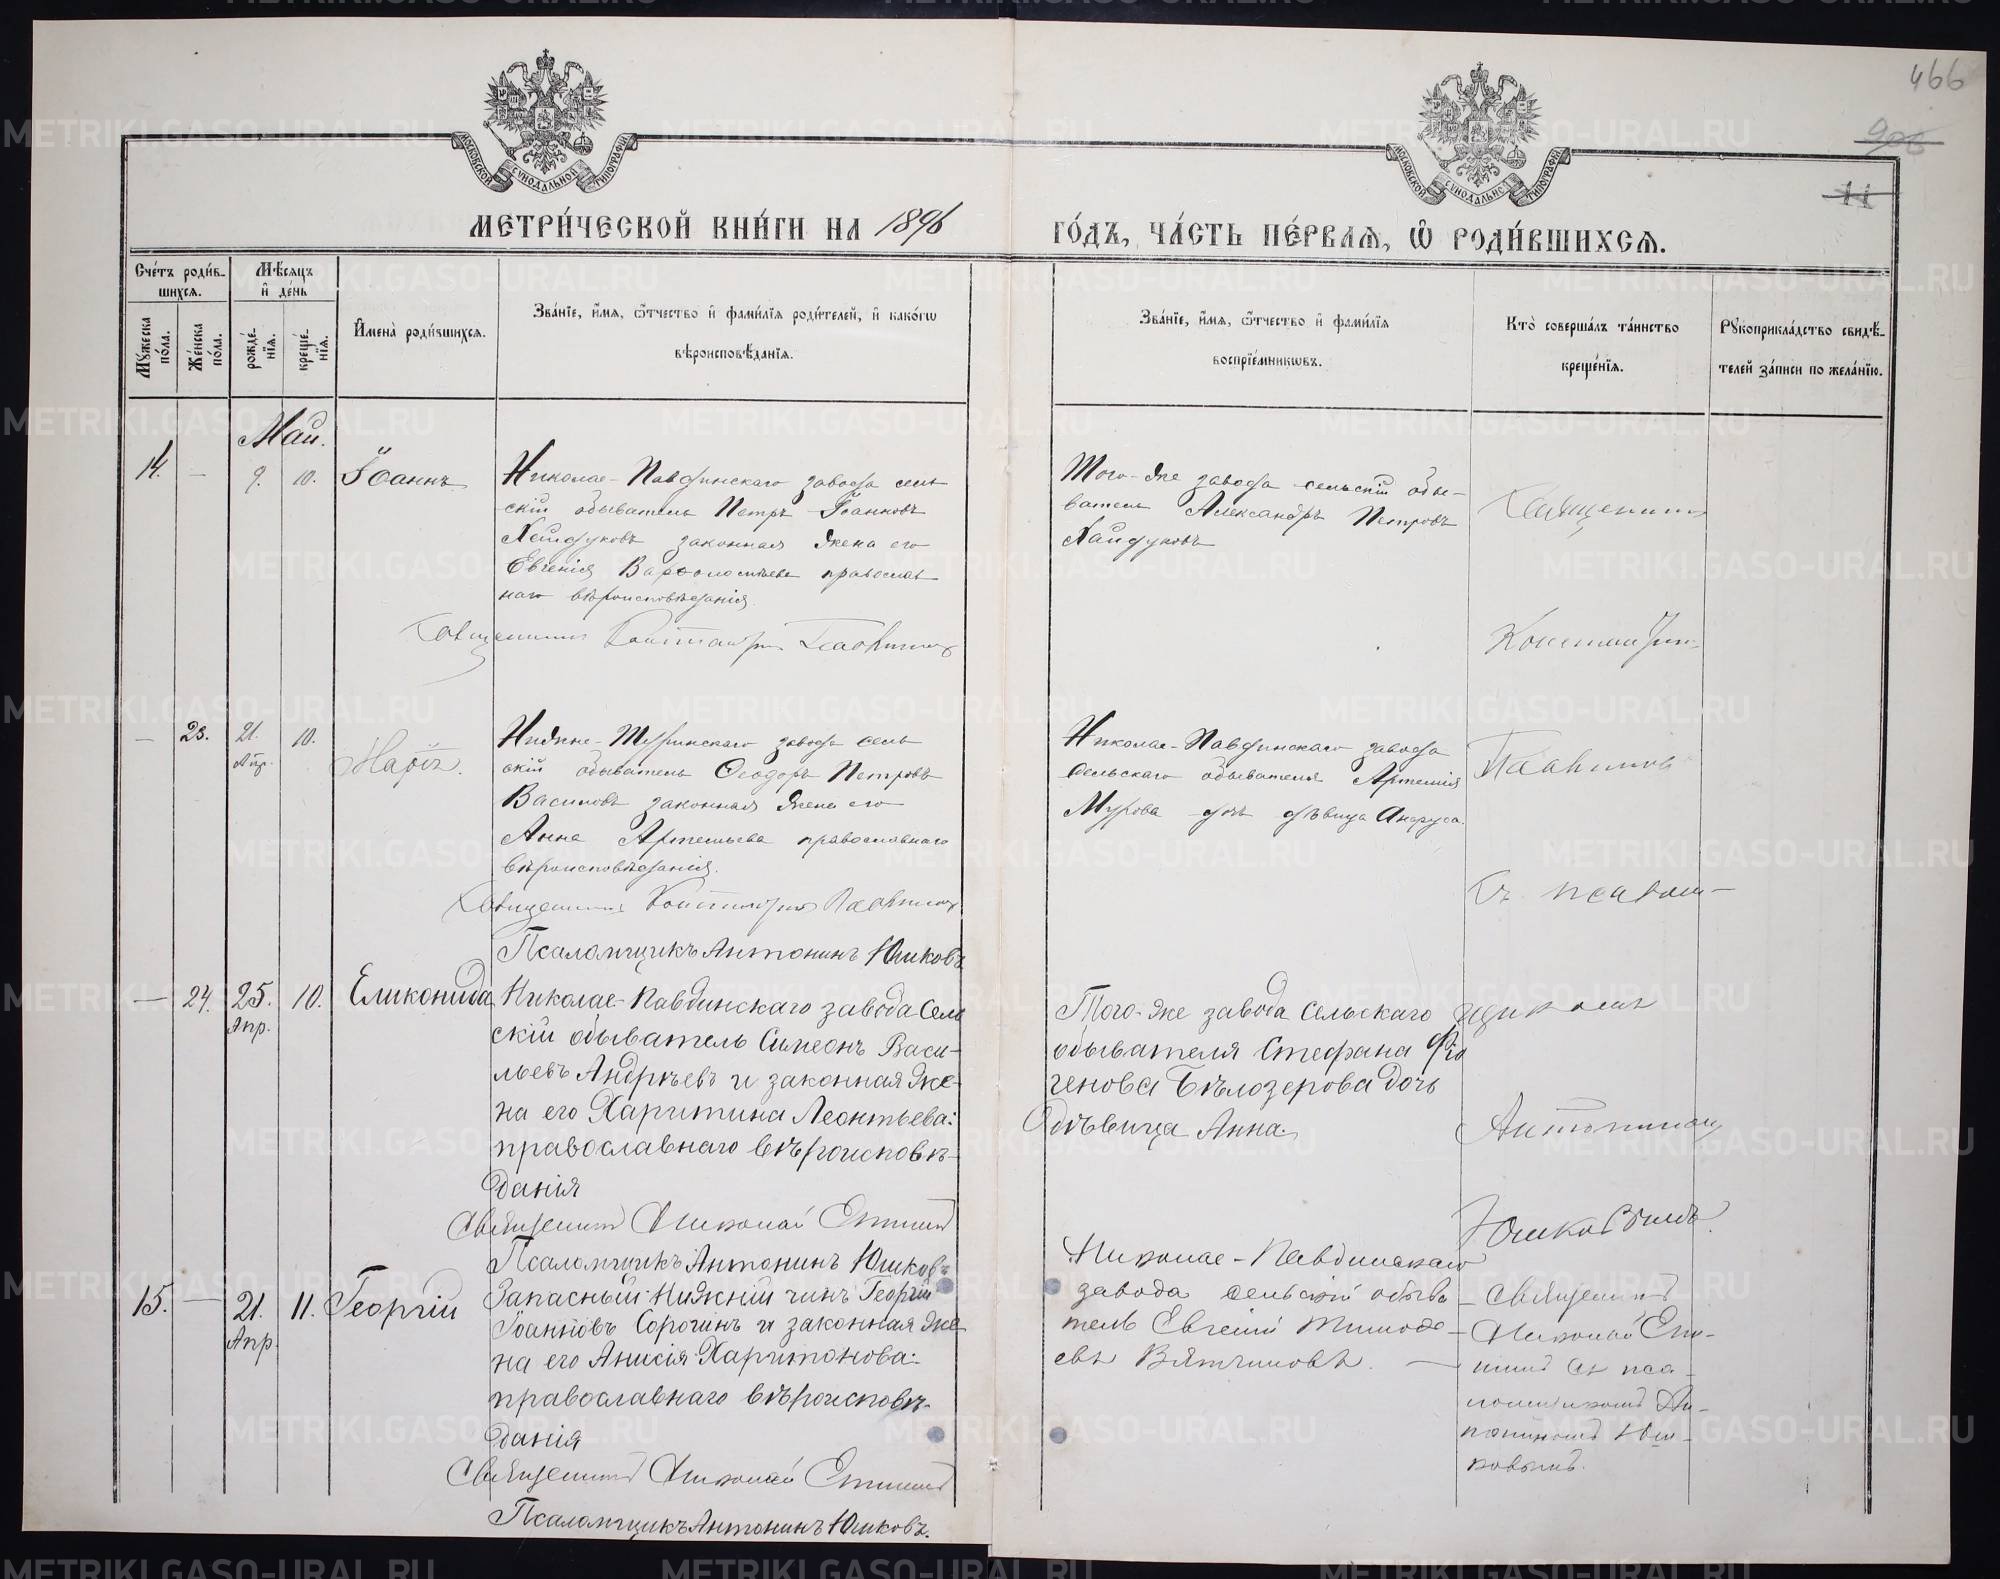 466
908
11
МОСКОВСКОЙ СУНОДАЛЬНОЙ ТИПОГРАФІИ
МОСКОВСКОЙ СУНОДАЛЬНОЙ ТИПОГРАФІИ
МЕТРИ́ЧЕСКОЙ КНИ́ГИ НА 1896 ГО́ДЪ, ЧА́СТЬ ПЕ́РВАЯ, Ѡ РОДИ́ВШИХСЯ.
Сче́тъ роди́в-
шихся.
Мѣ́сяцъ
и де́нь
Мꙋ́жеска по́ла.
Же́нска по́ла.
рожде́-
нїя.
креще́-
нїя.
И҆мена̀ роди́вшихся.
Зва́нїе, и҆́мя, ѻ҆́тчество и҆ фами́лїя роди́телей, и҆ како́гѡ
вѣроисповѣ́данїя.
Зва́нїе, и҆́мя, ѻ҆́тчество и҆ фами́лїя
воспрїе́мникѡвъ.
Кто̀ соверша́лъ та́инство
креще́нїя.
Рꙋкоприкла́дство свидѣ́-
телей за́писи по жела́нїю.
Май.
14. — 9. 10. Іоаннъ
Николае-Павдинскаго завода сель
скій обыватель Петръ Іоанновъ
Хайдуковъ законная жена его
Евгенія Варѳоломеева православ
наго вѣроисповѣданія.
Священникъ Константинъ Славнинъ
Того-же завода сельскій обы-
ватель Александръ Петровъ
Хайдуковъ
Священникъ
Константин
— 23. 21. Апр. 10. Марія.
Нижне-Туринскаго завода сель
скій обыватель Ѳеодоръ Петровъ
законная жена его
Анна Артемьева православнаго
вѣроисповѣданія.
Священникъ
Псаломщикъ Антонинъ Юшковъ
Николае-Павдинскаго завода
сельскаго обывателя Артемія
Мурова дочь дѣвица
съ псалом-
— 24. 25. Апр. 10. Еликонида
Николае-Павдинскаго завода Сель
скій обыватель Симеонъ Васи-
льевъ Андрѣевъ и законная же-
на его Харитина Леонтьева:
православнаго вѣроисповѣ-
данія
Священникъ Николай
Псаломщикъ Антонинъ Юшковъ
Того-же завода Сельскаго
обывателя Стефана
генова Бѣлозерова дочь
дѣвица Анна.
щикомъ
Антониномъ
Юшковымъ.
15. — 21. Апр. 11. Георгій
Запасный нижній чинъ Георгій
Іоанновъ Сорогинъ и законная же
на его Анисія Харитонова:
православнаго вѣроисповѣ-
данія
Священникъ Николай
Псаломщикъ Антонинъ Юшковъ.
Николае-Павдинскаго
завода сельскій обыва
тель Евгеній Тимофе-
евъ Вятчиновъ. —
Священникъ
Николай
съ пса-
ломщикомъ Ан-
тониномъ Юш-
ковымъ.
METRIKI.GASO-URAL.RU